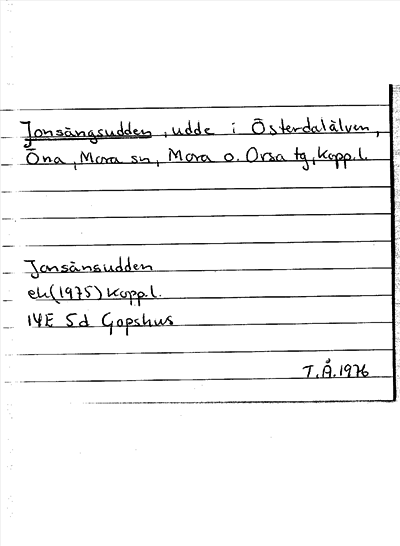 Jonsängsudden, udde i Österdalälven,
Öna, Mora sn, Mora o. Orsa tg, Kopp.l.
Jonsänsudden
ek(1975) Kopp.l.
14E 5d Gopshus
T.Å.1976